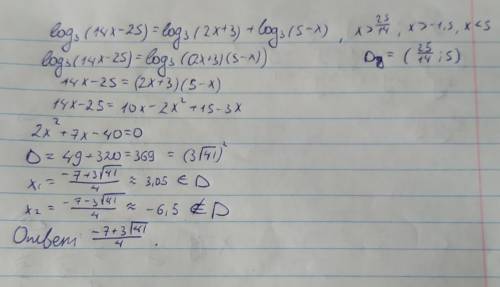 log₃(14x-25)=log₃(2x+3)+log₃(5-x), x>25/14, x>-1,5, x<5
log₃(14x-25)=log₃((2x+3)(5-x)) D = (25/14; 5)
14x-25=(2x+3)(5-x)
14x-25=10x-2x²+15-3x
2x²+7x-40=0
D = 49+320=369 = (3√41)²
x₁ = (-7+3√41)/4 ≈ 3,05 ∈ D
x₂ = (-7-3√41)/4 ≈ -6,5 ∉ D
Ответ (-7+3√41)/4.